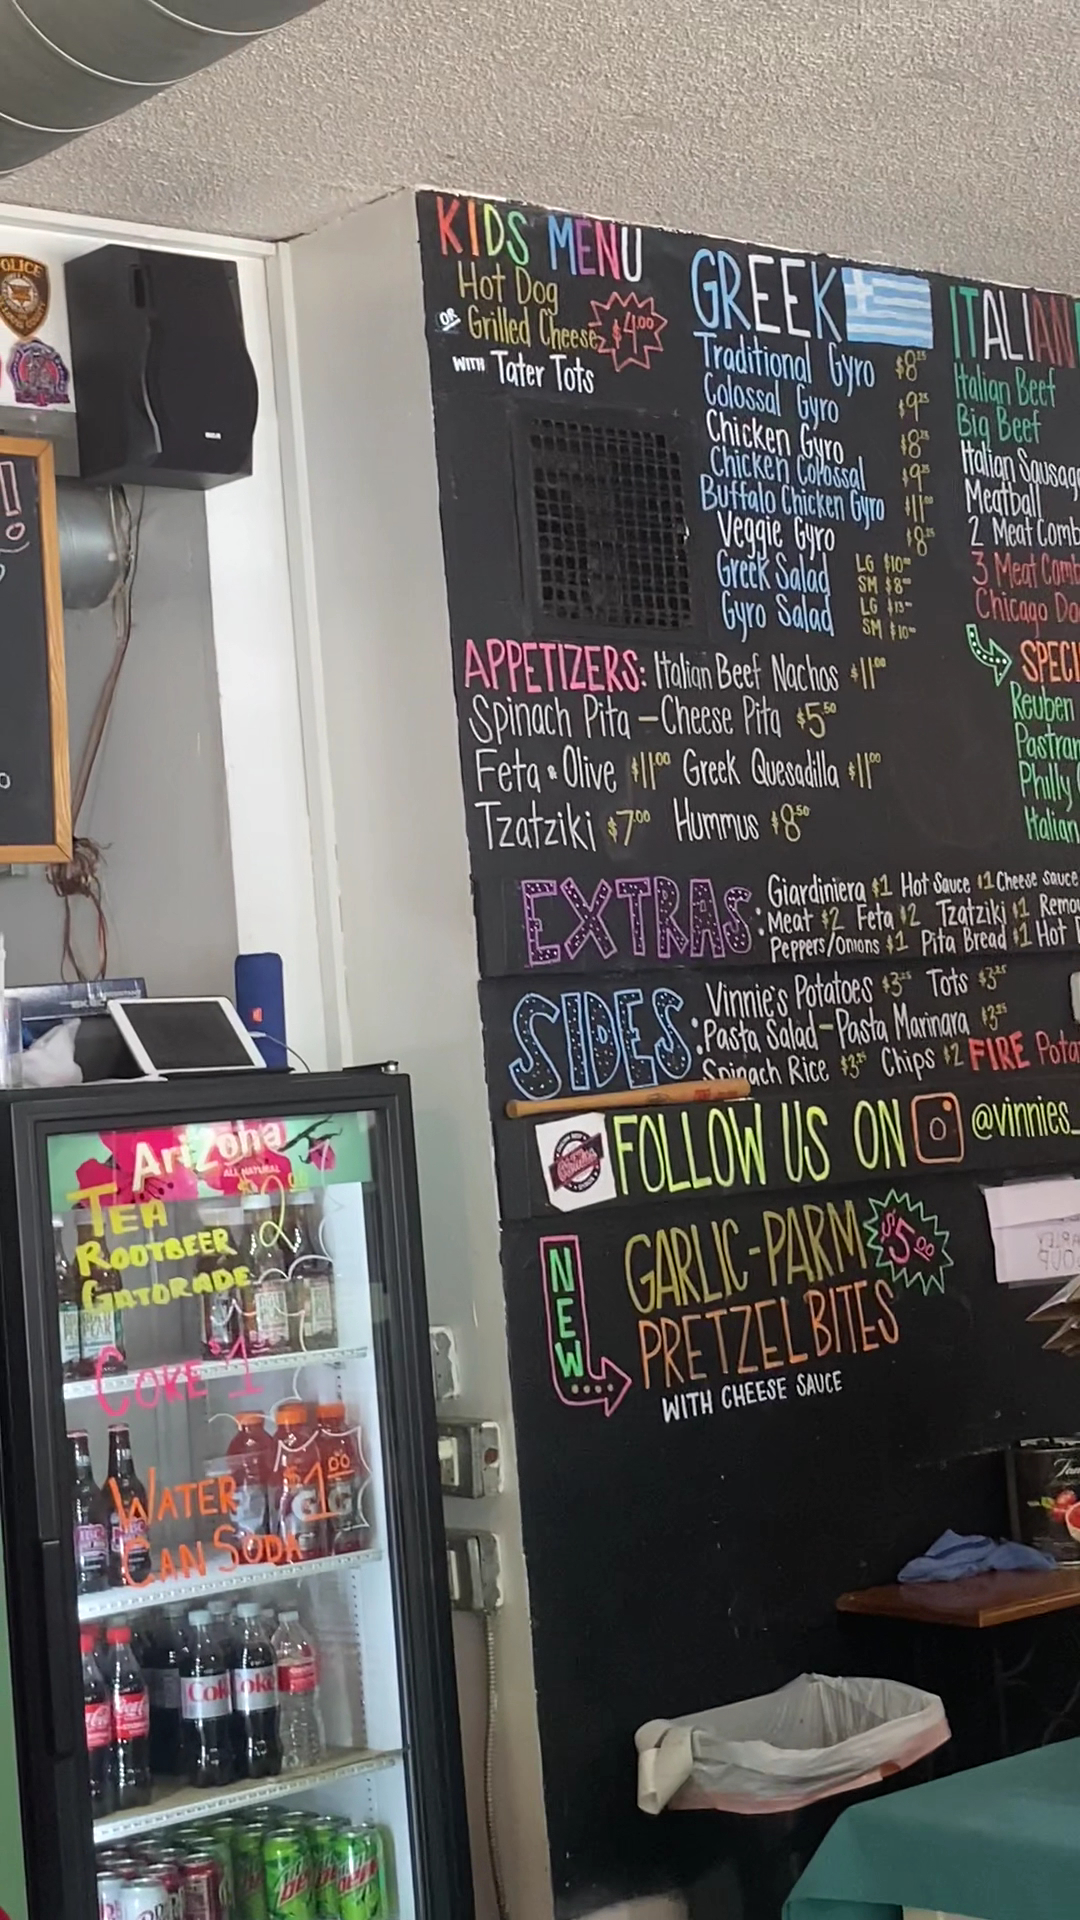 POLICE
KIDS MENU
Hot Dog
OR Grilled Cheese $4.00
WITH Tater Tots
GREEK
Traditional Gyro $8.25
Colossal Gyro $9.25
Chicken Gyro $8.25
Chicken Colossal $9.25
Buffalo Chicken Gyro $11.00
Veggie Gyro $8.25
Greek Salad LG $10.00
SM $8.00
Gyro Salad LG $13.00
SM $10.00
ITALIAN
Italian Beef
Big Beef
Italian Sausag
Meatball
2 Meat Comb
3 Meat Comb
Chicago Do
SPECI
Reuben
Pastram
Philly
Italian
APPETIZERS: Italian Beef Nachos $11.00
Spinach Pita - Cheese Pita $5.50
Feta & Olive $11.00 Greek Quesadilla $11.00
Tzatziki $7.00 Hummus $8.50
EXTRAS:
Giardiniera $1 Hot Sauce $1 Cheese sauce
Meat $2 Feta $2 Tzatziki $1 Remou
Peppers/Onions $1 Pita Bread $1 Hot
SIDES:
Vinnie's Potatoes $3.25 Tots $3.25
Pasta Salad - Pasta Marinara $3.25
Spinach Rice $3.25 Chips $2 FIRE Pota
FOLLOW US ON @vinnies_
NEW
GARLIC-PARM $5.00
PRETZEL BITES
WITH CHEESE SAUCE
AriZona
ALL NATURAL
TEA $2.00
ROOTBEER
GATORADE
COKE $1
WATER $1.00
CAN SODA
Coke
Coke